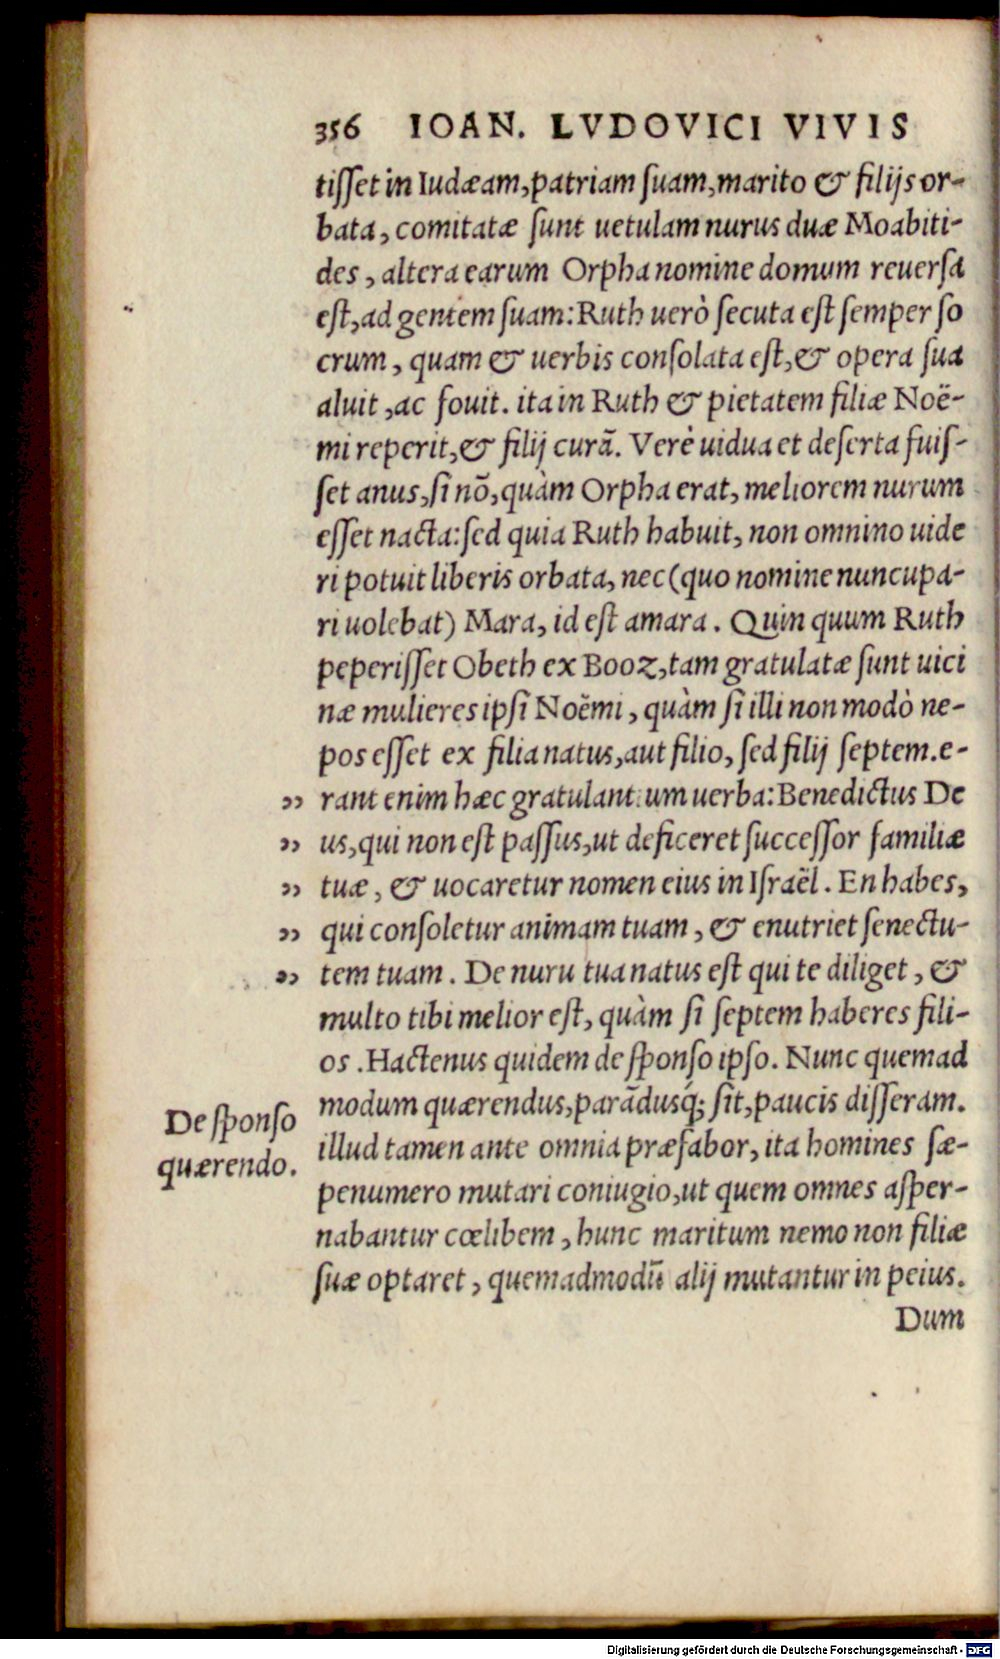 356 IOAN. LVDOVICI VIVIS
tisset in Iudæam, patriam suam, marito & filijs or-
bata, comitatæ sunt uetulam nurus duæ Moabiti-
des, altera earum Orpha nomine domum reuersa
est, ad gentem suam: Ruth uerò secuta est semper so
crum, quam & uerbis consolata est, & opera sua
aluit, ac fouit. ita in Ruth & pietatem filiæ Noë-
mi reperit, & filij curã. Verè uidua et deserta fuis-
set anus, si nõ, quàm Orpha erat, meliorem nurum
esset nacta: sed quia Ruth habuit, non omnino uide
ri potuit liberis orbata, nec (quo nomine nuncupa-
ri uolebat) Mara, id est amara. Quin quum Ruth
peperisset Obeth ex Booz, tam gratulatæ sunt uici
næ mulieres ipsi Noëmi, quàm si illi non modò ne-
pos esset ex filia natus, aut filio, sed filij septem. e-
„ rant enim hæc gratulantium uerba: Benedictus De
„ us, qui non est passus, ut deficeret successor familiæ
„ tuæ, & uocaretur nomen eius in Israël. En habes,
„ qui consoletur animam tuam, & enutriet senectu-
„ tem tuam. De nuru tua natus est qui te diliget, &
multo tibi melior est, quàm si septem haberes fili-
os. Hactenus quidem de sponso ipso. Nunc quemad
modum quærendus, parãdusq́; sit, paucis disseram.
De sponso
quærendo.
illud tamen ante omnia præfabor, ita homines sæ-
penumero mutari coniugio, ut quem omnes asper-
nabantur cœlibem, hunc maritum nemo non filiæ
suæ optaret, quemadmodũ alij mutantur in peius.
Dum
Digitalisierung gefördert durch die Deutsche Forschungsgemeinschaft - DFG